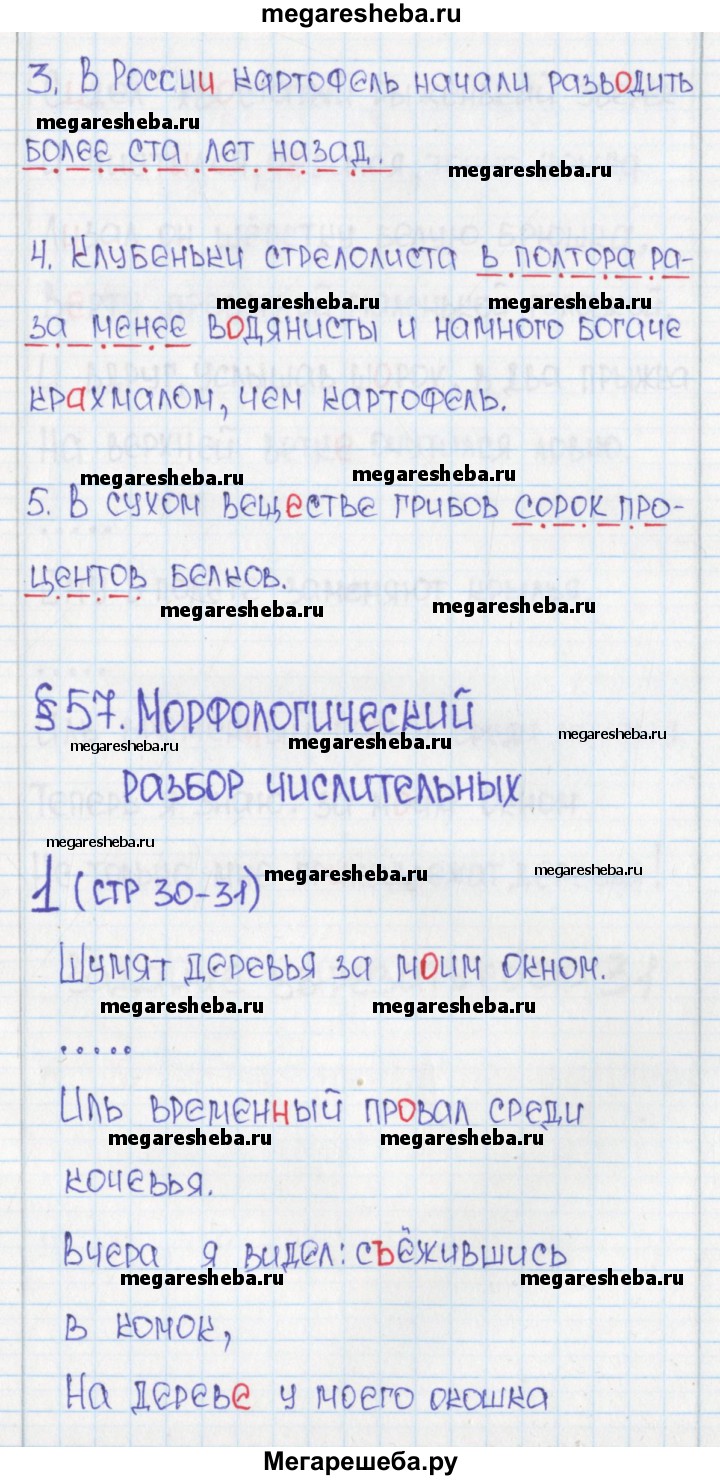 megaresheba.ru
3. В России картофель начали разводить
megaresheba.ru
более ста лет назад.
megaresheba.ru
4. Клубеньки стрелолиста в полтора ра-
megaresheba.ru megaresheba.ru
за менее водянисты и намного богаче
крахмалом, чем картофель.
megaresheba.ru megaresheba.ru
5. В сухом веществе грибов сорок про-
центов белков.
megaresheba.ru megaresheba.ru
§ 57. Морфологический
megaresheba.ru megaresheba.ru megaresheba.ru
разбор числительных
megaresheba.ru
megaresheba.ru megaresheba.ru
1 (стр 30-31)
Шумят деревья за моим окном.
megaresheba.ru megaresheba.ru
.....
Иль временный провал среди
megaresheba.ru megaresheba.ru
кочевья.
Вчера я видел: съёжившись
megaresheba.ru megaresheba.ru
в комок,
На дереве у моего окошка
Мегарешеба.ру